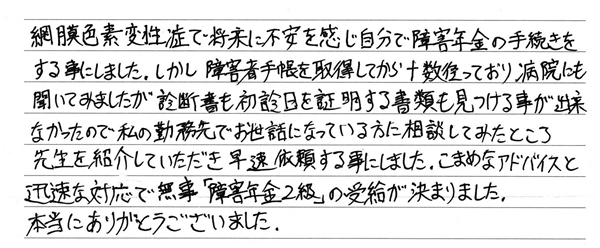 網膜色素変性症で将来に不安を感じ自分で障害年金の手続きを
する事にしました。しかし障害者手帳を取得してから十数経っており、病院にも
聞いてみましたが診断書も初診日を証明する書類も見つける事が出来
なかったので私の勤務先でお世話になっている方に相談してみたところ
先生を紹介していただき早速依頼する事にしました。こまめなアドバイスと
迅速な対応で無事「障害年金2級」の受給が決まりました。
本当にありがとうございました。